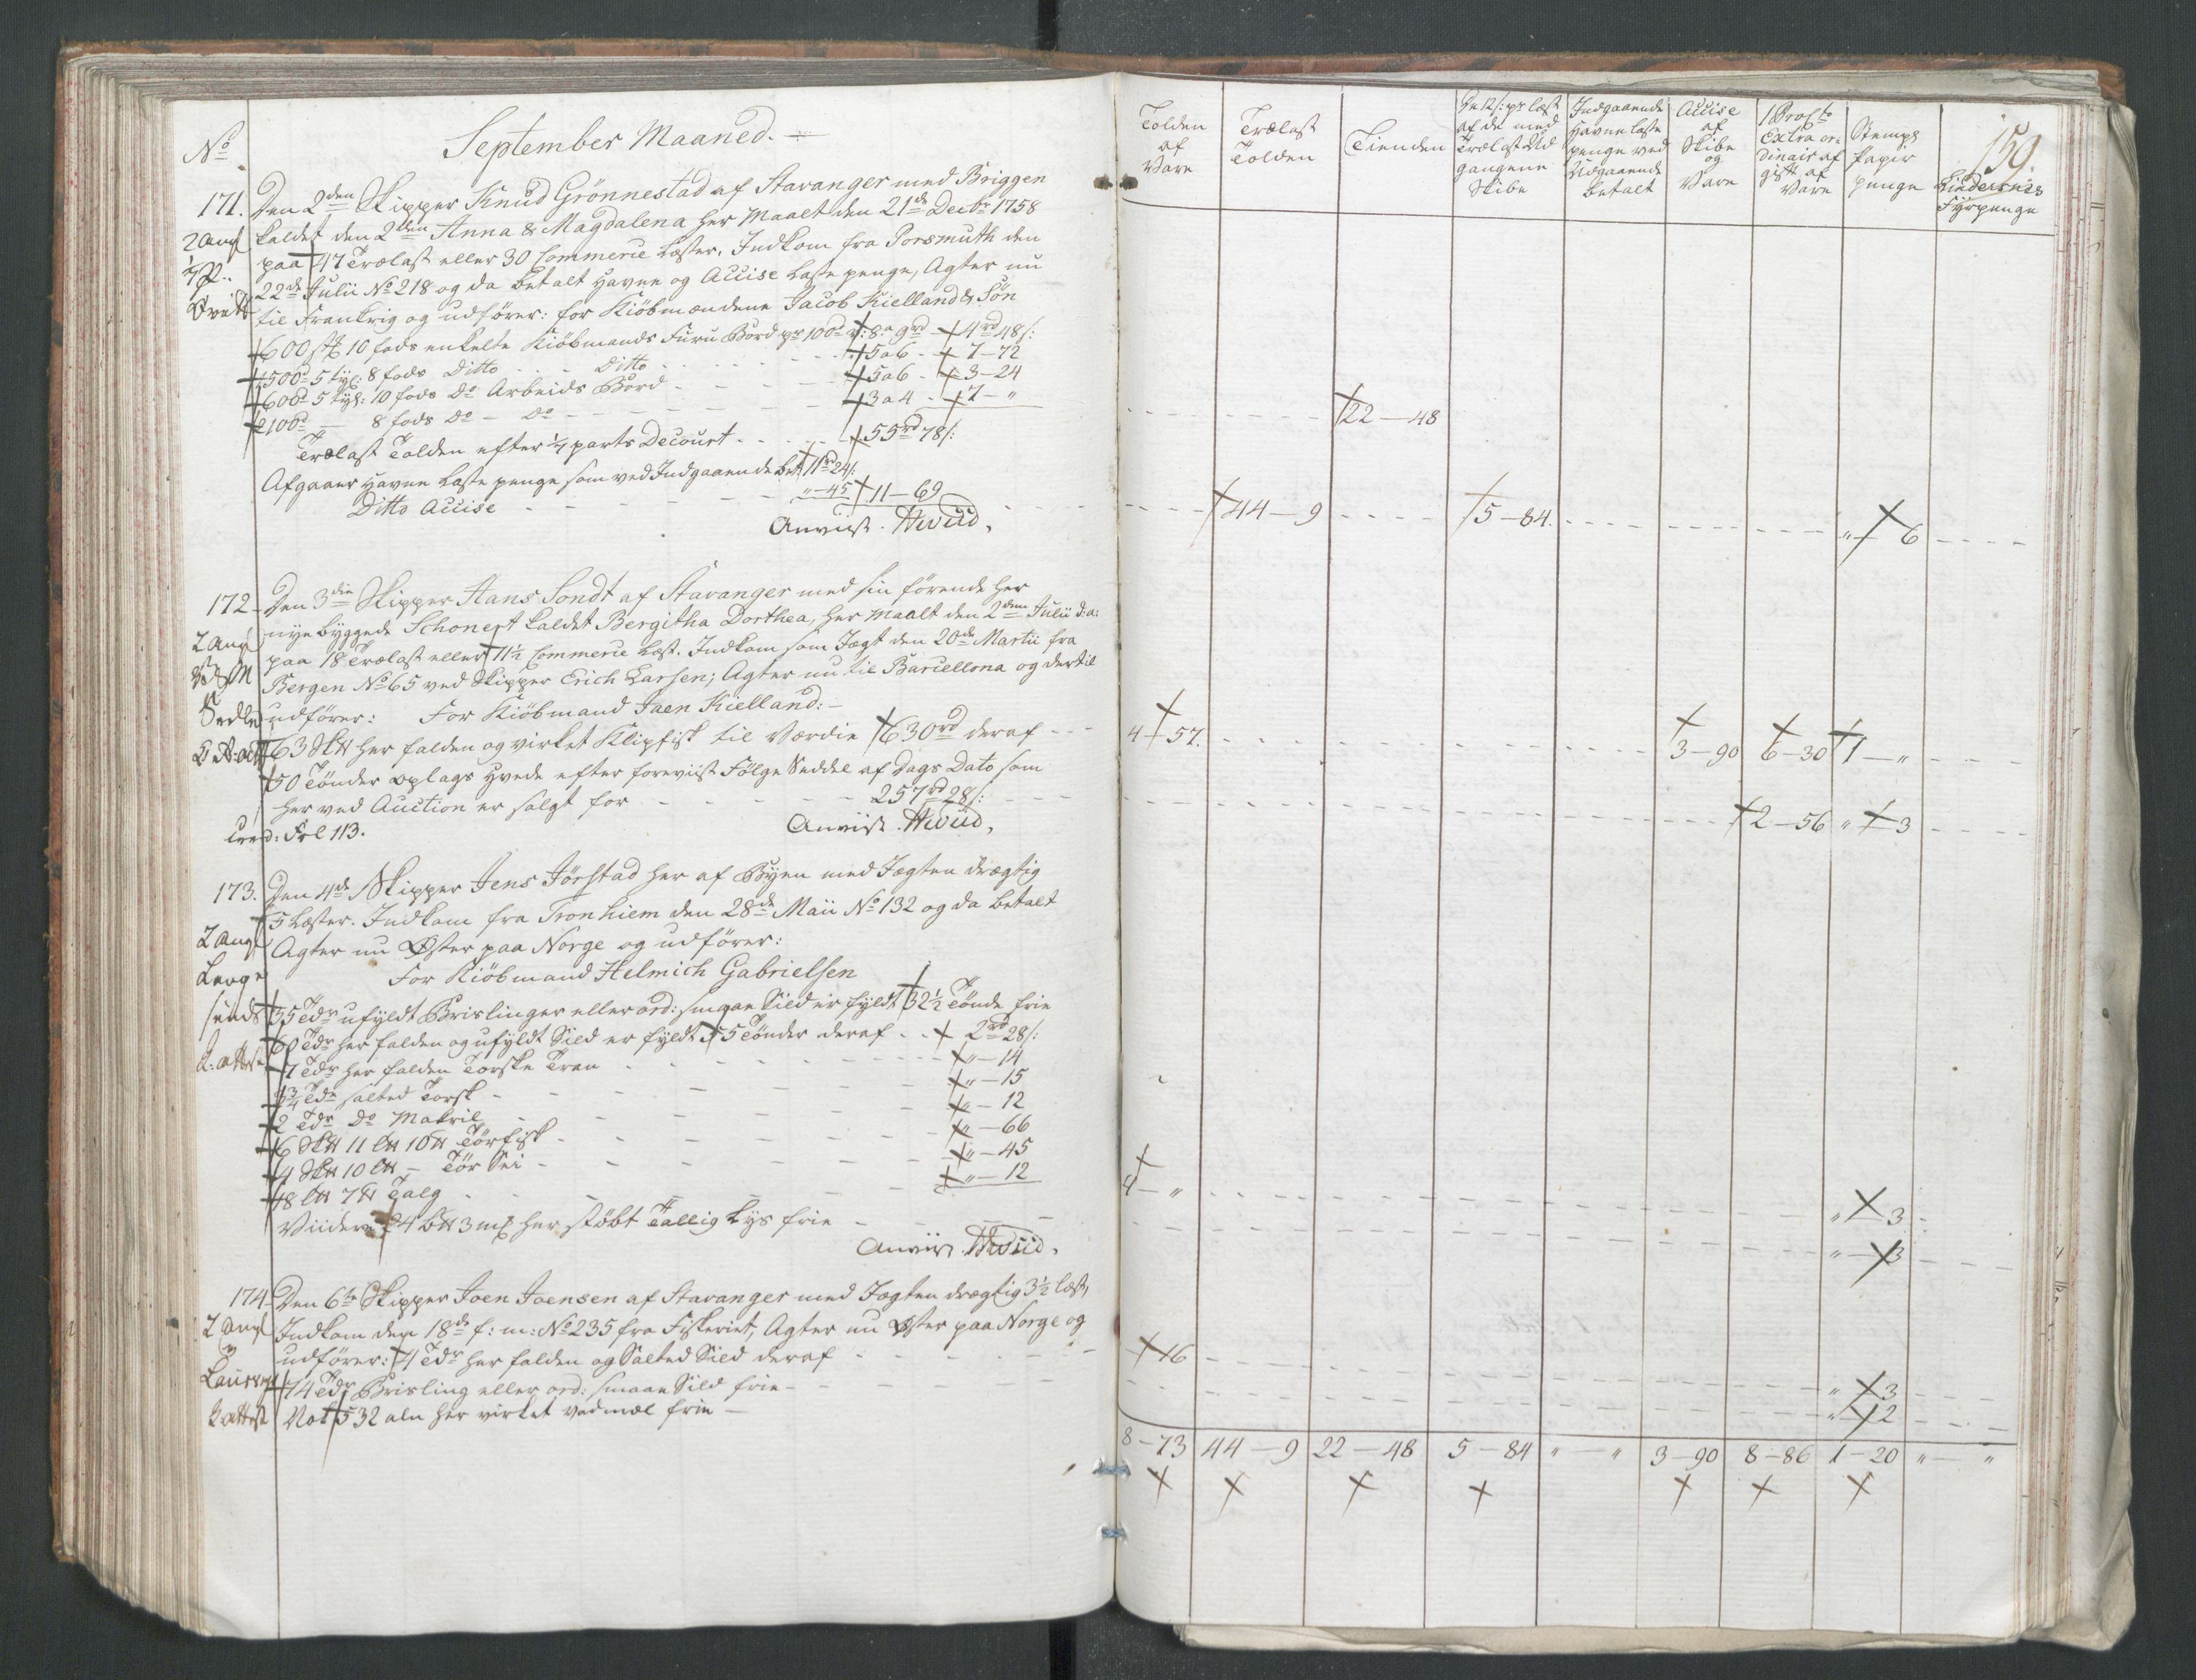 No
September Maaned.
171. Den 2den Skipper Knud Grönnestad af Stavanger med Briggen
kaldet den 2den Anna & Magdalena her Maalt den 21de Decbr 1758
paa 47 Trælast eller 30 Commerce Læster, Indkom fra Porsmuth den
22de Julii No 218 og da betalt Havne og Accise Laste penge, Agter nu
til Frankrig og udförer: for Kiöbmændene Jacob Kielland & Sön
2 Ang
600 stk 10 fods enkelte Kiöbmands Furu Bord pr 100de a: 8 a 9rd 4rd 48s:
1500d 5 tyl: 8 fods Ditto Ditto 5 a 6 - 7-72
600d 5 tyl: 10 fods do Arbeids Bord 5 a 6 - 3-24
2100d — 8 fods do - do 3 a 4 - 7 - "
Trælast Tolden efter 1/7 parts Decourt 55rd 78s:
Afgaaer Havne Laste penge som ved Indgaaende bet: 11rd 24s:
Ditto Accise "-45 11-69
Anviist. Hvüd.
172. Den 3die Skipper Hans Sondt af Stavanger med sin förende her
nye byggede Schonert kaldet Bergitha Dorthea, her maalt den 2den Julii d: a:
paa 18 Trælast eller 11½ Commerce Læst. Indkom som Jægt den 20de Martii fra
Bergen No 65 ved Skipper Erich Larsen; Agter nu til Barcellona og dertil
udförer: For Kiöbmand Jaen Kielland:-
2 Ang
Sedler
63 Sk℔ her falden og virket Klipfisk til Værdie 630rd deraf
50 Tönder oplags Hvede efter foreviist Fölge Seddel af Dags Dato som
her ved Auction er solgt for 257rd 28s:
Cred: Fol 113. Anviist. Hvüd.
173. Den 4de Skipper Jens Jörstad her af Byen med Jægten drægtig
5 Læster. Indkom fra Tronhiem den 28de Maii No 132 og da betalt
Agter nu Öster paa Norge og udförer:
For Kiöbmand Helmich Gabrielsen
2 Ang
35 Tdr ufyldt Brislinger eller ord: smaae Sild er fyldt 32½ Tönde frie
60 Tdr her falden og ufyldt Sild er fyldt 55 Tönder deraf 2rd 28s:
7 Tdr her falden Torske Tran "-14
3¾ Tdr salted Torsk "-15
2 Tdr do Makril "-12
6 Sk℔ 11 L℔ 10 ℔ Törfisk "-66
4 Sk℔ 10 L℔ - Tör Sei "-45
18 L℔ 7 ℔ Talg "-12
Viidere 24 B℔ 3 mk her stöbt Tallig Lys frie
Anviist. Hvüd.
2 attest
174. Den 6te Skipper Joen Joensen af Stavanger med Jægten drægtig 3½ læst,
Indkom den 18de f: m: No 235 fra Fiskeriet, Agter nu Öster paa Norge og
udförer: 4 Tdr her falden og Salted Sild deraf
14 Tdr Brisling eller ord: smaae Sild frie
Not 532 aln her virket vadmæl frie
2 Ang
2 attest
Tolden af Vare
Trælast Tolden
Tienden
De 12s: pr læst af de med Trælast Udgangene Skibe
Indgaaende Havne laste penge ved Udgaaende betalt
Accise af Skibe og Vare
1 Procto Extra ordinair afgift af Vare
Stempl papir penge
Lindersnes Fyrpenge
159.
22-48
44-9 5-84. "-6
4-57. 3-90 6-30 1-"
2-56 "-3
4-" "-3
"-3
-16
"-3
"-12
8-73 44-9 22-48 5-84 "-" 3-90 8-86 1-20 "-"